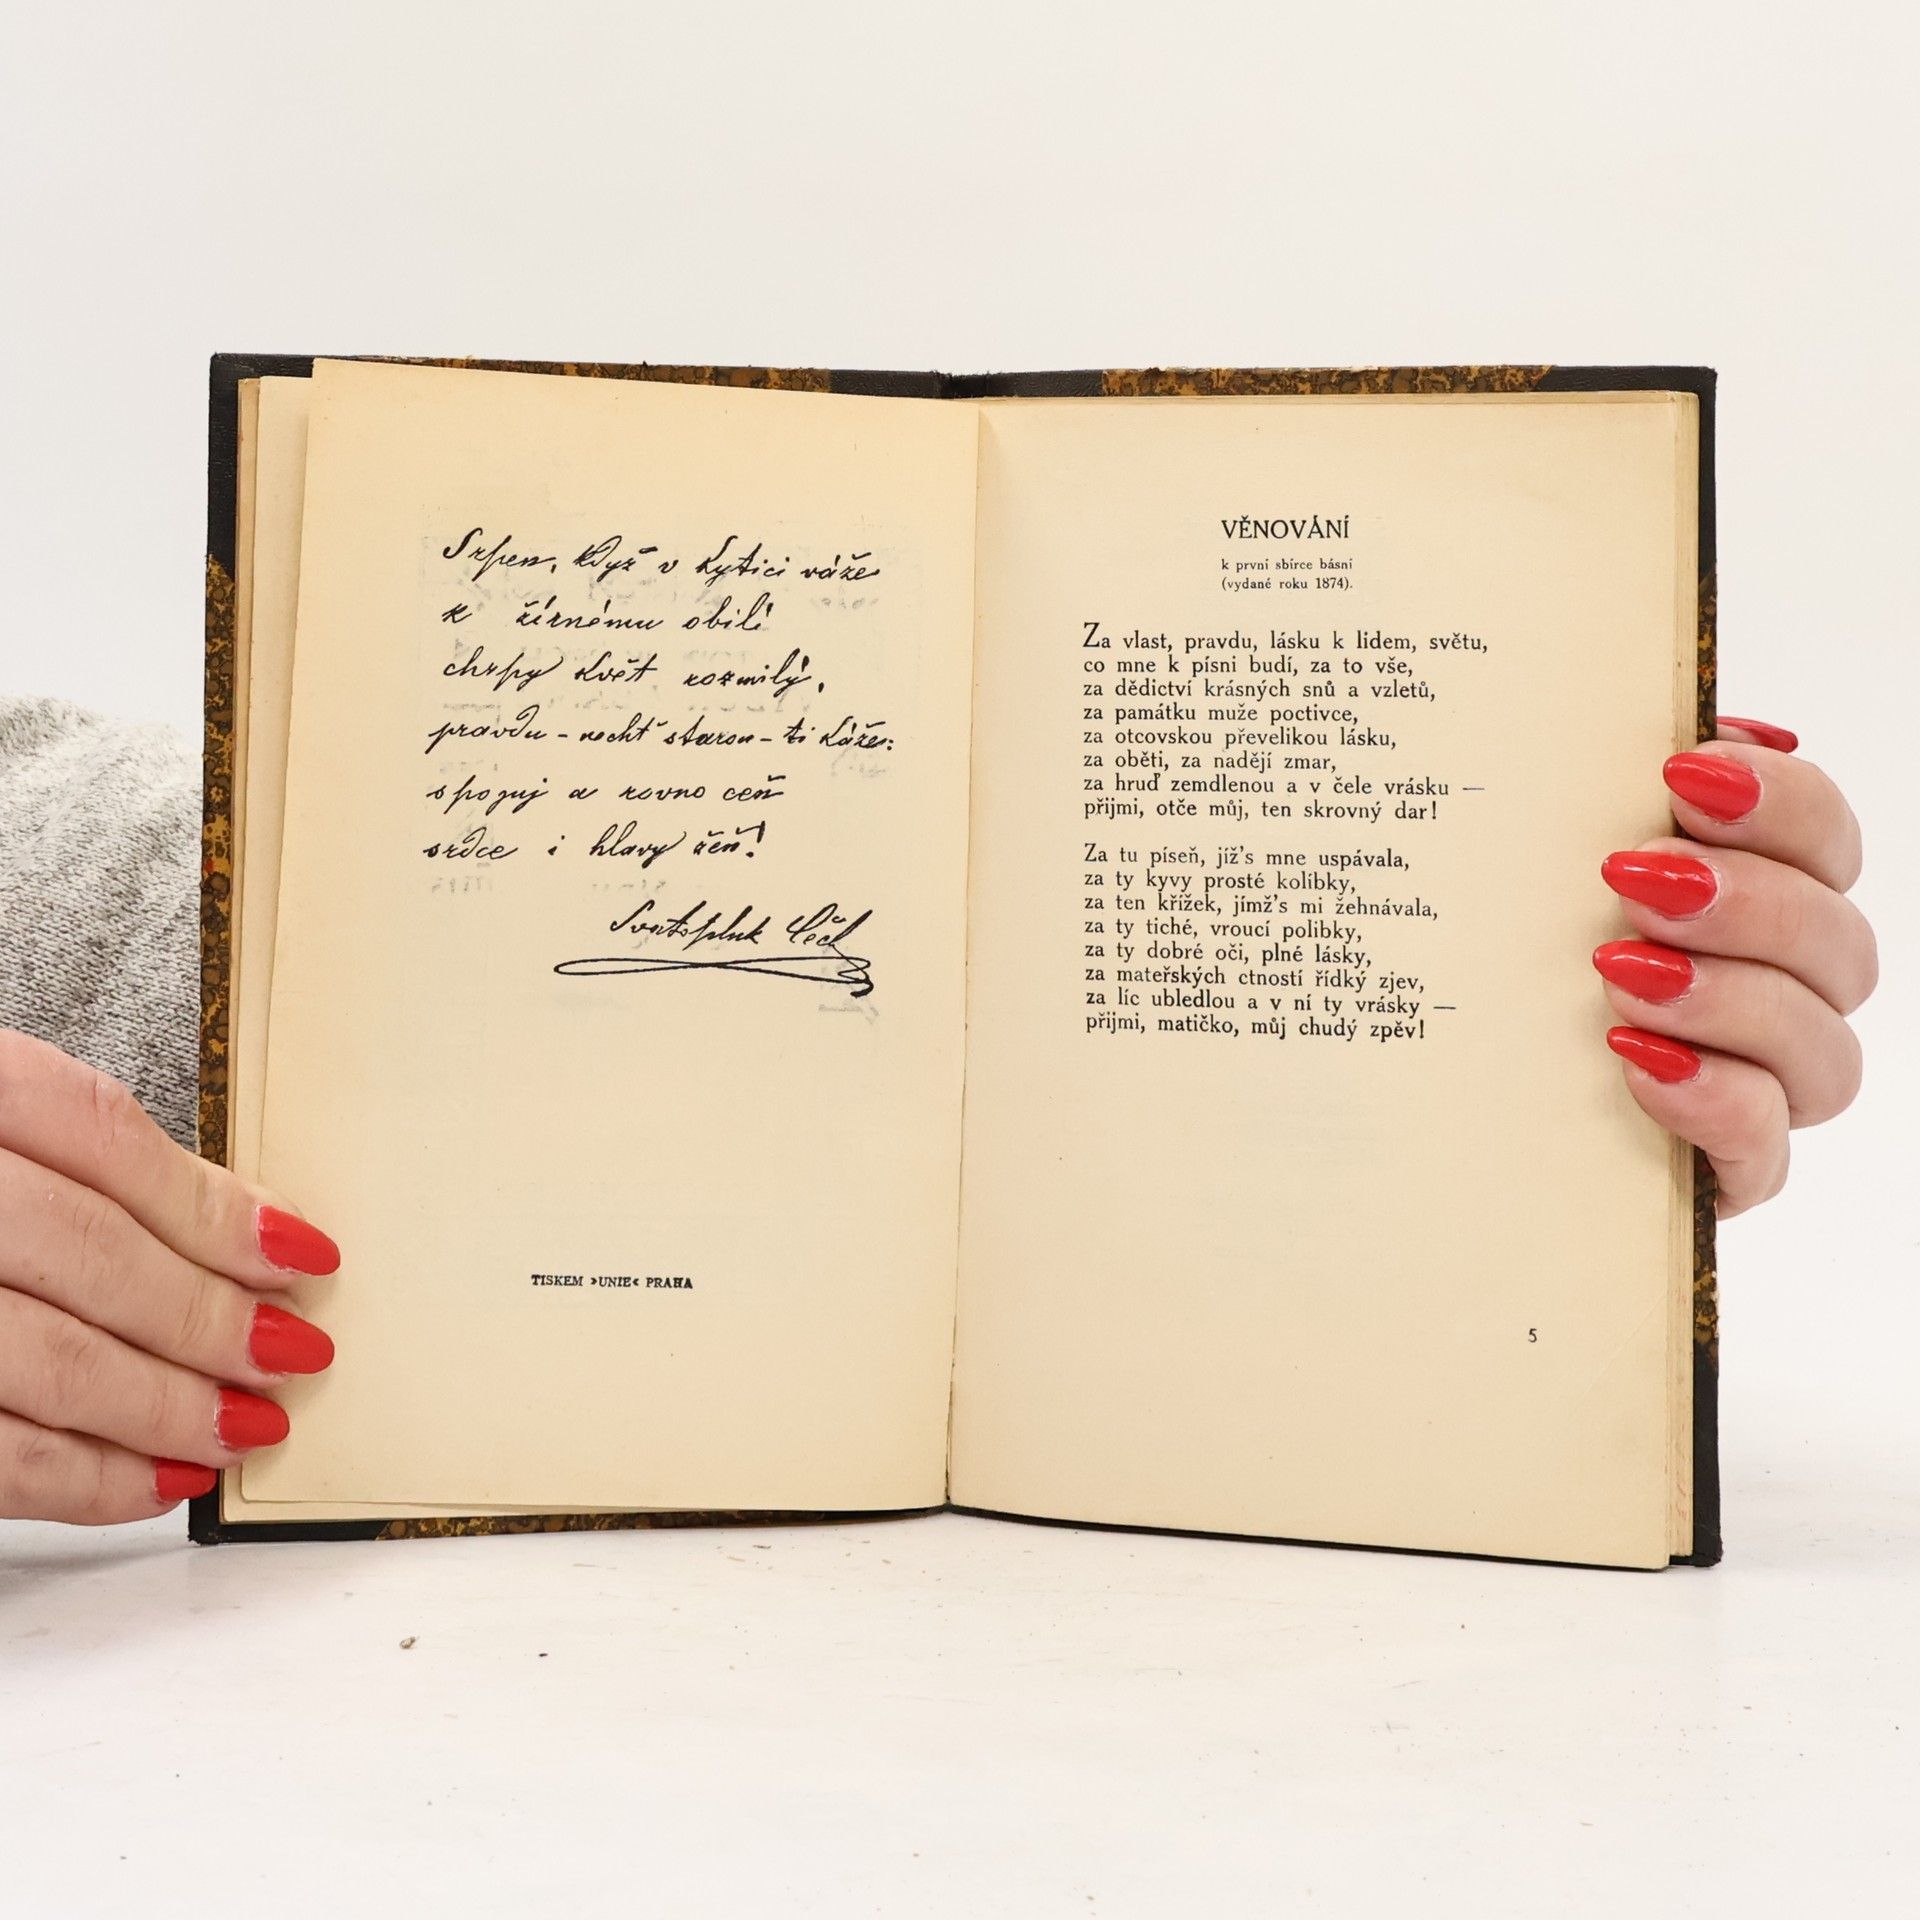 Srpen, když v kytici váže
k žírnému obilí
chrpy květ rozmilý,
pravdu – nechť starou – ti káže:
spojuj a rovno ceň
srdce i hlavy žeň!
Svatopluk Čech
TISKEM »UNIE« PRAHA
VĚNOVÁNÍ
k první sbírce básní
(vydané roku 1874).
Za vlast, pravdu, lásku k lidem, světu,
co mne k písni budí, za to vše,
za dědictví krásných snů a vzletů,
za památku muže poctivce,
za otcovskou převelikou lásku,
za oběti, za nadějí zmar,
za hruď zemdlenou a v čele vrásku —
přijmi, otče můj, ten skrovný dar!
Za tu píseň, jíž's mne uspávala,
za ty kyvy prosté kolíbky,
za ten křížek, jímž's mi žehnávala,
za ty tiché, vroucí polibky,
za ty dobré oči, plné lásky,
za mateřských ctností řídký zjev,
za líc ubledlou a v ní ty vrásky —
přijmi, matičko, můj chudý zpěv!
5